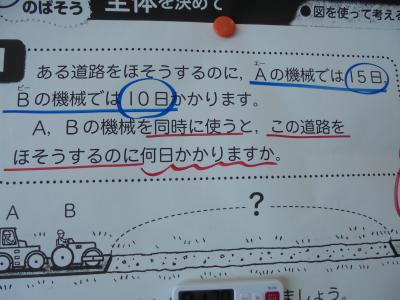 のばそう 全体を決めて
●図を使って考える
1
ある道路をほそうするのに，Aの機械では15日
Bの機械では10日かかります。
A，Bの機械を同時に使うと，この道路を
ほそうするのに何日かかりますか。
A B ?
ましょう。